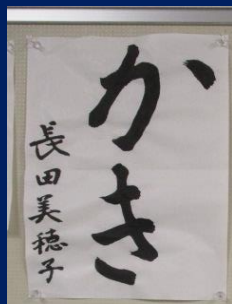 かき
長田美穂子